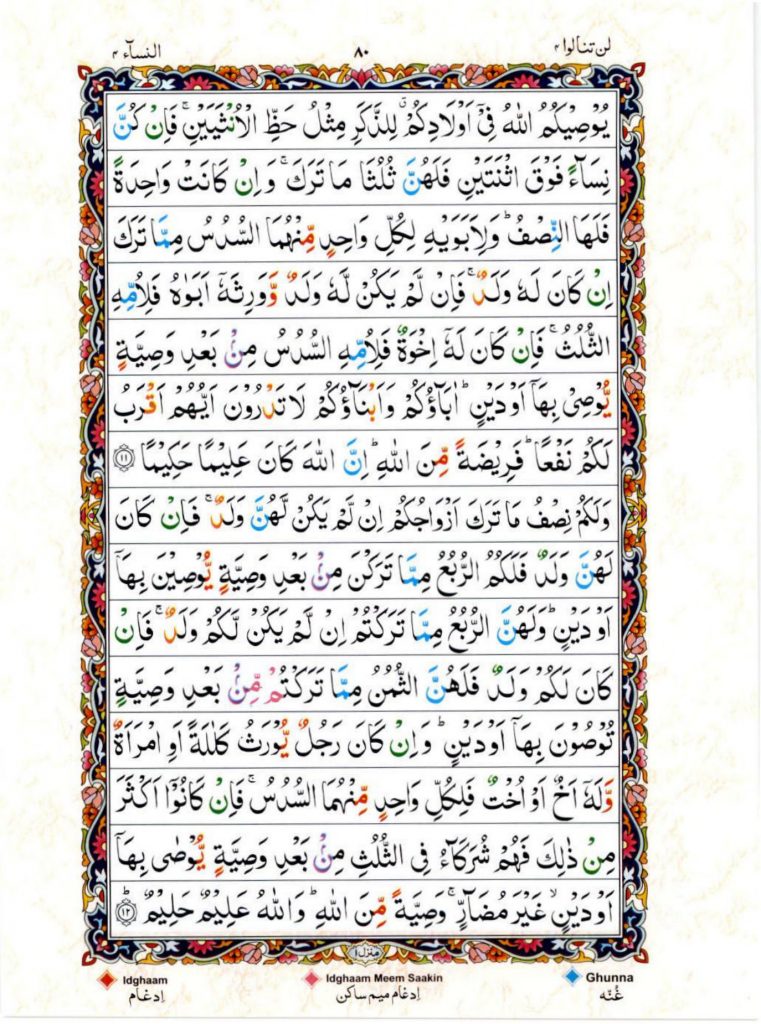 لن تنالوا ۴
۸۰
النسآء ۴
يُوْصِيْكُمُ اللّٰهُ فِيْۤ اَوْلَادِكُمْ ۗ لِلذَّكَرِ مِثْلُ حَظِّ الْاُنْثَيَيْنِ ۚ فَاِنْ كُنَّ
نِسَآءً فَوْقَ اثْنَتَيْنِ فَلَهُنَّ ثُلُثَا مَا تَرَكَ ۚ وَ اِنْ كَانَتْ وَاحِدَةً
فَلَهَا النِّصْفُ ؕ وَلِاَبَوَيْهِ لِكُلِّ وَاحِدٍ مِّنْهُمَا السُّدُسُ مِمَّا تَرَكَ
اِنْ كَانَ لَهٗ وَلَدٌ ۚ فَاِنْ لَّمْ يَكُنْ لَّهٗ وَلَدٌ وَّوَرِثَهٗۤ اَبَوٰهُ فَلِاُمِّهِ
الثُّلُثُ ۚ فَاِنْ كَانَ لَهٗۤ اِخْوَةٌ فَلِاُمِّهِ السُّدُسُ مِنْۢ بَعْدِ وَصِيَّةٍ
يُّوْصِيْ بِهَاۤ اَوْ دَيْنٍ ؕ اٰبَآؤُكُمْ وَاَبْنَآؤُكُمْ لَا تَدْرُوْنَ اَيُّهُمْ اَقْرَبُ
لَكُمْ نَفْعًا ؕ فَرِيْضَةً مِّنَ اللّٰهِ ؕ اِنَّ اللّٰهَ كَانَ عَلِيْمًا حَكِيْمًا ۝۱۱
وَلَكُمْ نِصْفُ مَا تَرَكَ اَزْوَاجُكُمْ اِنْ لَّمْ يَكُنْ لَّهُنَّ وَلَدٌ ۚ فَاِنْ كَانَ
لَهُنَّ وَلَدٌ فَلَكُمُ الرُّبُعُ مِمَّا تَرَكْنَ مِنْۢ بَعْدِ وَصِيَّةٍ يُّوْصِيْنَ بِهَاۤ
اَوْ دَيْنٍ ؕ وَلَهُنَّ الرُّبُعُ مِمَّا تَرَكْتُمْ اِنْ لَّمْ يَكُنْ لَّكُمْ وَلَدٌ ۚ فَاِنْ
كَانَ لَكُمْ وَلَدٌ فَلَهُنَّ الثُّمُنُ مِمَّا تَرَكْتُمْ مِّنْۢ بَعْدِ وَصِيَّةٍ
تُوْصُوْنَ بِهَاۤ اَوْ دَيْنٍ ؕ وَ اِنْ كَانَ رَجُلٌ يُّوْرَثُ كَلٰلَةً اَوِ امْرَاَةٌ
وَّلَهٗۤ اَخٌ اَوْ اُخْتٌ فَلِكُلِّ وَاحِدٍ مِّنْهُمَا السُّدُسُ ۚ فَاِنْ كَانُوْۤا اَكْثَرَ
مِنْ ذٰلِكَ فَهُمْ شُرَكَآءُ فِي الثُّلُثِ مِنْۢ بَعْدِ وَصِيَّةٍ يُّوْصٰى بِهَاۤ
اَوْ دَيْنٍ ۙ غَيْرَ مُضَآرٍّ ۚ وَصِيَّةً مِّنَ اللّٰهِ ؕ وَاللّٰهُ عَلِيْمٌ حَلِيْمٌ ۝۱۲ؕ
منزل ۱
Idghaam
Idghaam Meem Saakin
Ghunna
ادغام
ادغام میم ساکن
غُنّه